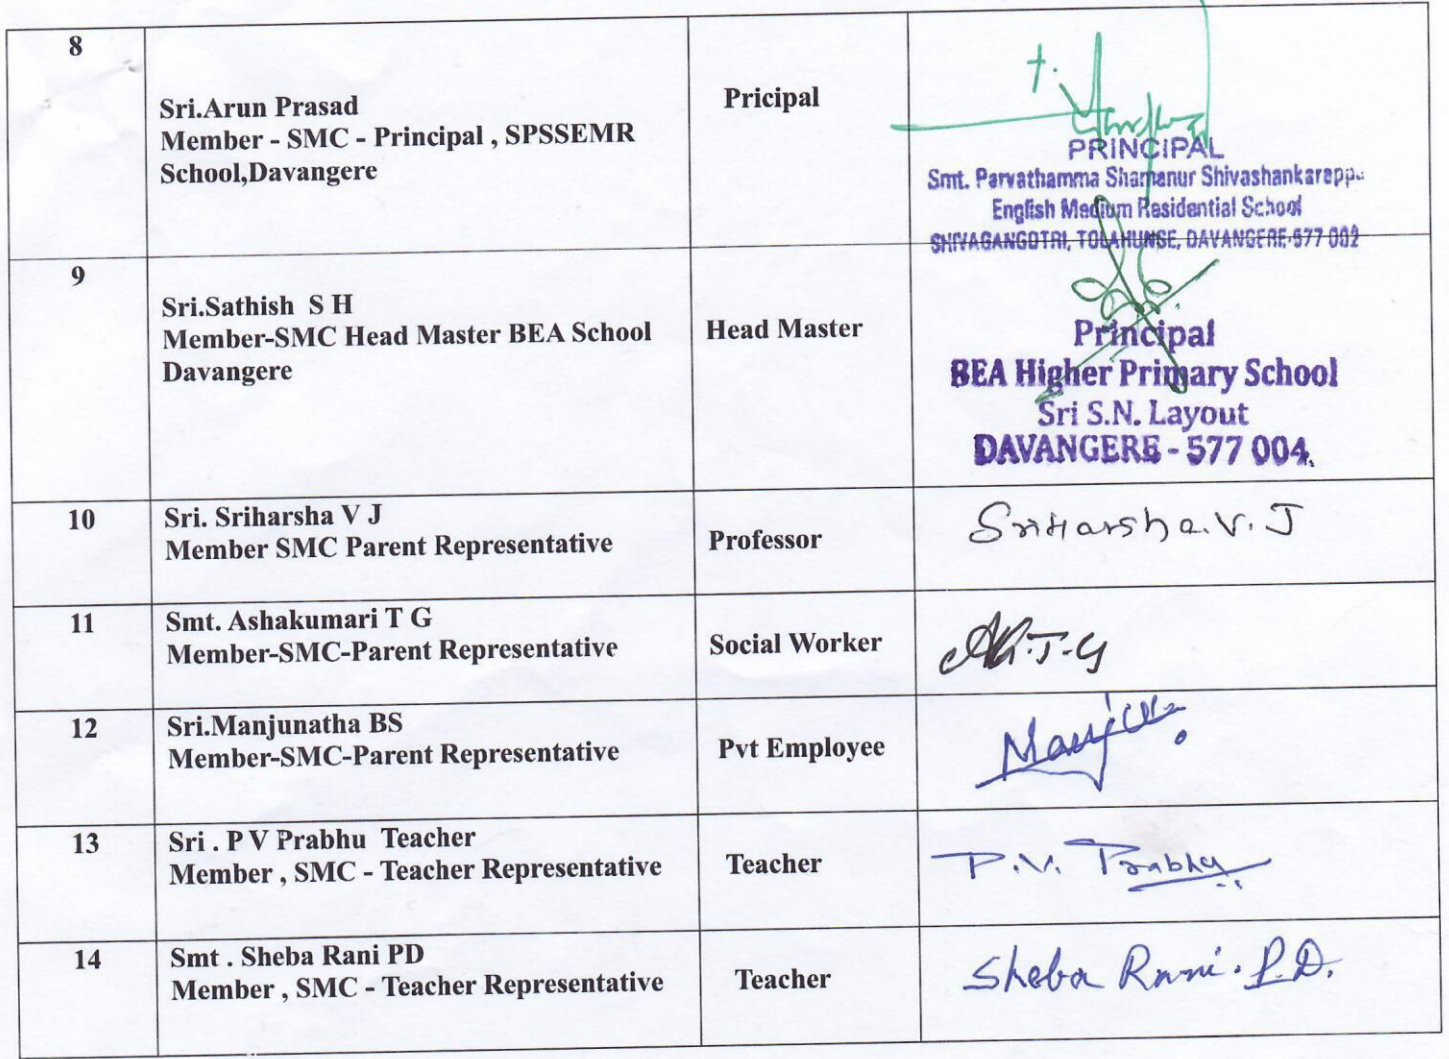 8
Sri.Arun Prasad
Member - SMC - Principal , SPSSEMR
School,Davangere
Pricipal
PRINCIPAL
Smt. Parvathamma Shamanur Shivashankarappa
English Medium Residential School
SHIVAGANGOTRI, TOLAHUNSE, DAVANGERE-577 002
9
Sri.Sathish S H
Member-SMC Head Master BEA School
Davangere
Head Master
Principal
BEA Higher Primary School
Sri S.N. Layout
DAVANGERE - 577 004.
10
Sri. Sriharsha V J
Member SMC Parent Representative
Professor
Sriharsha.V.J
11
Smt. Ashakumari T G
Member-SMC-Parent Representative
Social Worker
T-G
12
Sri.Manjunatha BS
Member-SMC-Parent Representative
Pvt Employee
13
Sri . P V Prabhu Teacher
Member , SMC - Teacher Representative
Teacher
P.V. Prabhu
14
Smt . Sheba Rani PD
Member , SMC - Teacher Representative
Teacher
Sheba Rani. P.D.